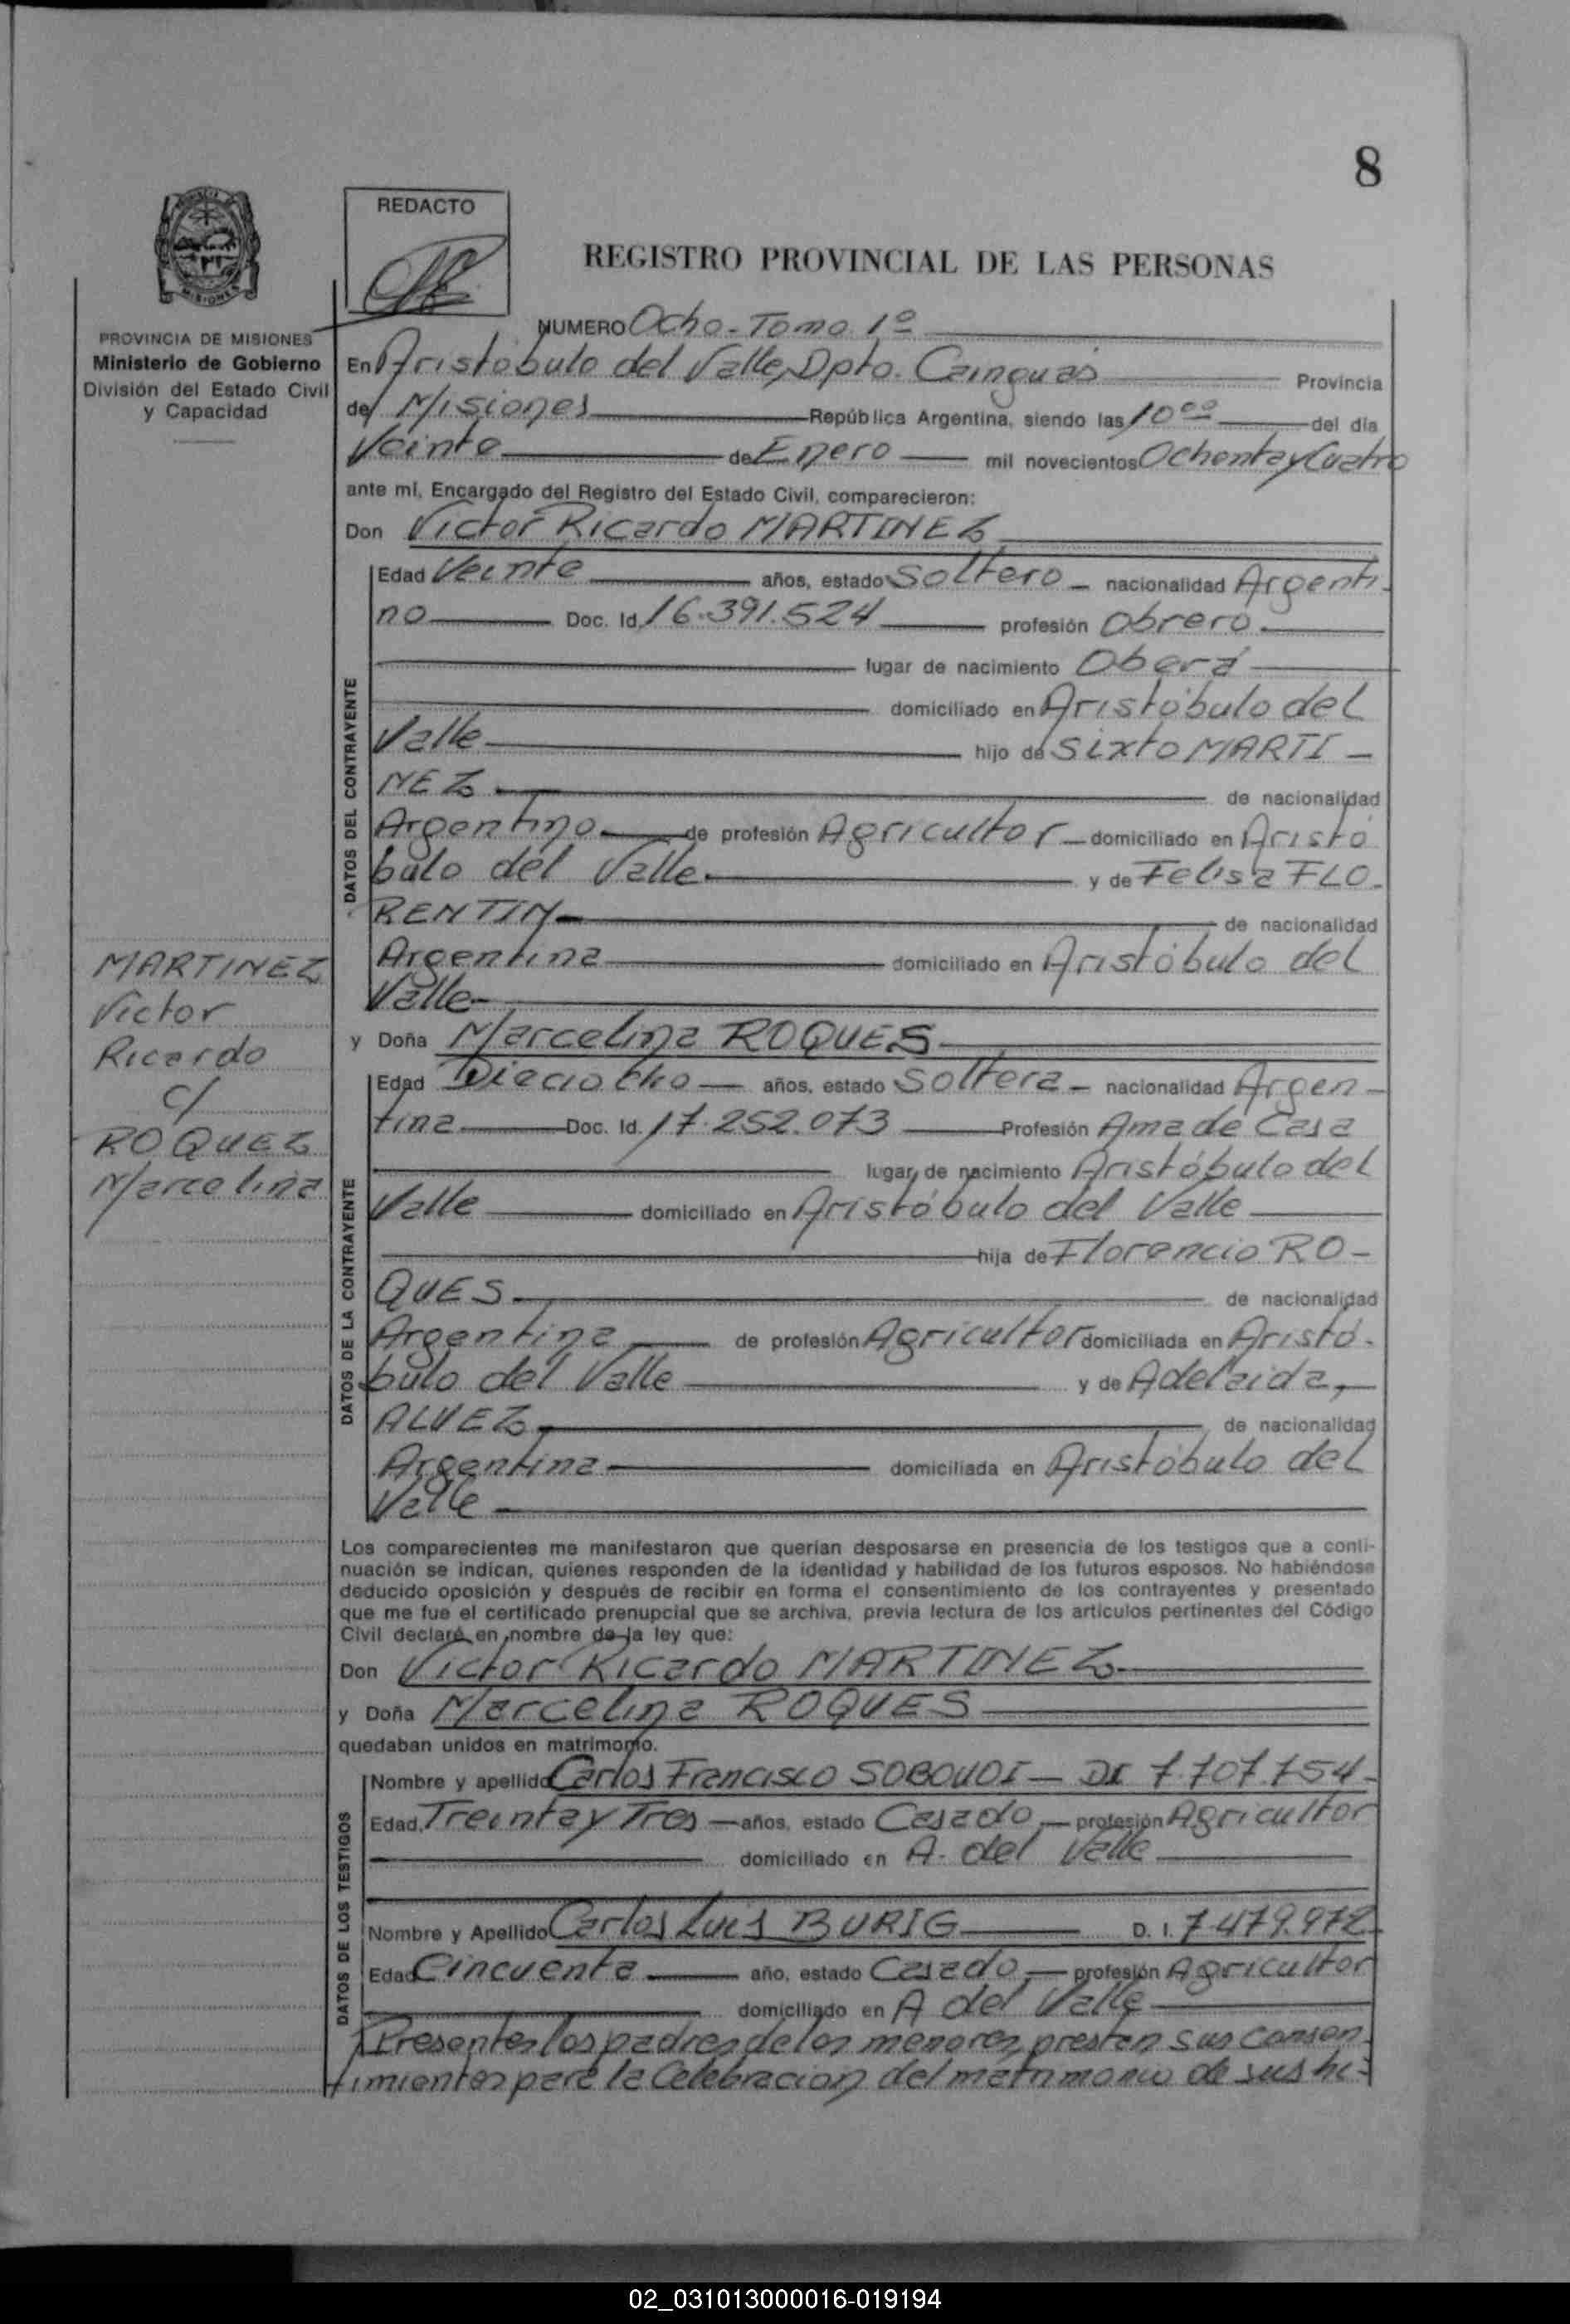 8
REDACTO
REGISTRO PROVINCIAL DE LAS PERSONAS
MISIONES
PROVINCIA DE MISIONES
Ministerio de Gobierno
División del Estado Civil
y Capacidad
NUMERO Ocho - Tomo 1º
En Aristóbulo del Valle, Dpto. Cainguás Provincia
de Misiones República Argentina, siendo las 10 00 del día
Veinte de Enero mil novecientos Ochenta y Cuatro
ante mí, Encargado del Registro del Estado Civil, comparecieron:
Don Victor Ricardo MARTINEZ
DATOS DEL CONTRAYENTE
Edad Veinte años, estado Soltero - nacionalidad Argenti-
no Doc. Id. 16.391.524 profesión Obrero
lugar de nacimiento Oberá
domiciliado en Aristóbulo del
Valle hijo de Sixto MARTI-
NEZ de nacionalidad
Argentino de profesión Agricultor domiciliado en Aristó
bulo del Valle y de Felisa FLO-
RENTIN de nacionalidad
Argentina domiciliado en Aristóbulo del
Valle
MARTINEZ
Victor
Ricardo
c/
ROQUEZ
Marcelina
y Doña Marcelina ROQUES
DATOS DE LA CONTRAYENTE
Edad Dieciocho años, estado Soltera - nacionalidad Argen-
tina Doc. Id. 17.252.073 Profesión Ama de Casa
lugar de nacimiento Aristóbulo del
Valle domiciliado en Aristóbulo del Valle
hija de Florencio RO-
QUES de nacionalidad
Argentina de profesión Agricultor domiciliada en Aristó-
bulo del Valle y de Adelaida,
ALVEZ de nacionalidad
Argentina domiciliada en Aristóbulo del
Valle
Los comparecientes me manifestaron que querían desposarse en presencia de los testigos que a conti-
nuación se indican, quienes responden de la identidad y habilidad de los futuros esposos. No habiéndose
deducido oposición y después de recibir en forma el consentimiento de los contrayentes y presentado
que me fue el certificado prenupcial que se archiva, previa lectura de los artículos pertinentes del Código
Civil declaré en nombre de la ley que:
Don Victor Ricardo MARTINEZ
y Doña Marcelina ROQUES
quedaban unidos en matrimonio.
DATOS DE LOS TESTIGOS
Nombre y apellido Carlos Francisco - DI 7.707.754-
Edad Treinta y Tres años, estado Casado profesión Agricultor
domiciliado en A. del Valle
Nombre y Apellido Carlos Luis BURIG D. I. 7.479.972
Edad Cincuenta año, estado Casado profesión Agricultor
domiciliado en A del Valle
Presentes los padres de los menores presten sus consen-
timientos para la Celebracion del matrimonio de sus hi-
02_031013000016-019194